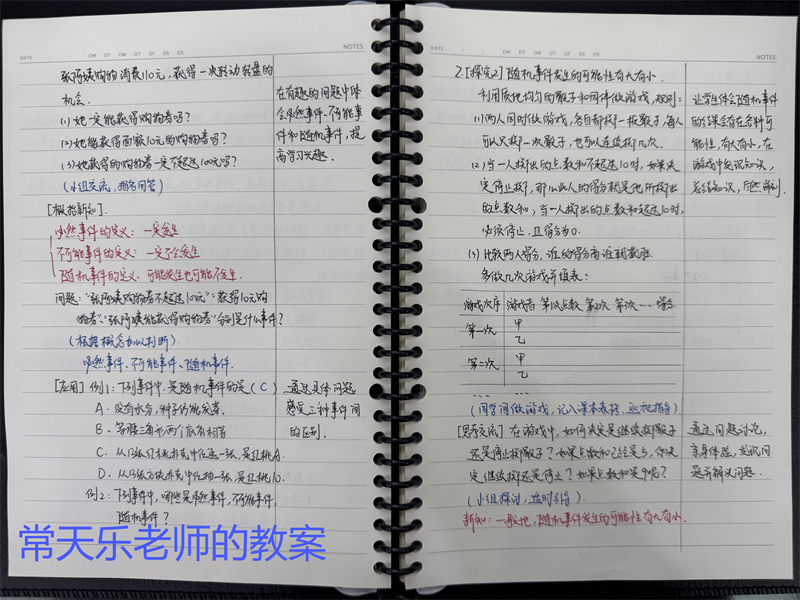 DATE
NOTES
张阿姨购物消费110元，获得一次转动转盘的
机会.
(1) 她一定能获得购物券吗？
(2) 她能获得面额10元的购物券吗？
(3) 她获得的购物券一定不超过100元吗？
(小组交流，指名回答)
[概括新知].
必然事件的定义：一定发生
不可能事件的定义：一定不会发生
随机事件的定义：可能发生也可能不发生.
问题："张阿姨购物券不超过10元"：获得10元购
物券"、"张阿姨能获得购物券"分别是什么事件？
(根据概念加以判断).
必然事件、不可能事件、随机事件.
[应用] 例1：下列事件中，是随机事件的是 (C)
A. 没有水分，种子仍能发芽.
B. 等腰三角形两个底角相等
C. 从13张红桃扑克中任抽一张，是红桃A.
D. 从13张方块扑克中任抽一张，是红桃10.
例2：下列事件中，哪些是必然事件，不可能事件，
随机事件？
在有趣的问题中体
会必然事件、不可能事
件和随机事件，提
高学习兴趣.
通过具体问题
感受三种事件间
的区别.
常天乐老师的教案
DATE
NOTES
2.[探究2] 随机事件发生的可能性有大有小.
利用质地均匀的骰子和同伴做游戏，规则：
(1) 两人同时做游戏，各自都掷一枚骰子，每人
可以只掷一次骰子，也可以连续掷几次.
(2) 当一人掷出的点数和不超过10时，如果决
定停止掷，那么此人的得分就是他所掷出
的点数和；当一人掷出的点数和超过10时，
必须停止，且得分为0.
(3) 比较两人得分，谁的得分高谁就获胜
多做几次游戏并填表：
游戏次序 游戏者 第1次点数 第2次 第3次 … 得分
第一次 甲
乙
第二次 甲
乙
… …
(同学间做游戏，记入课本表格，巡视指导)
[思考交流] 在游戏中，如何决定是继续掷骰子
还是停止掷骰子？如果点数和已经是5，你决
定继续掷还是停止？如果点数和是9呢？
(小组探讨，适时引导)
新知：一般地，随机事件发生的可能性有大有小.
让学生体会随机事件
的结果会有各种可
能性，有大有小，在
游戏中发现知识，
总结知识，
通过问题讨论，
亲身体验，发现问
题并解决问题.